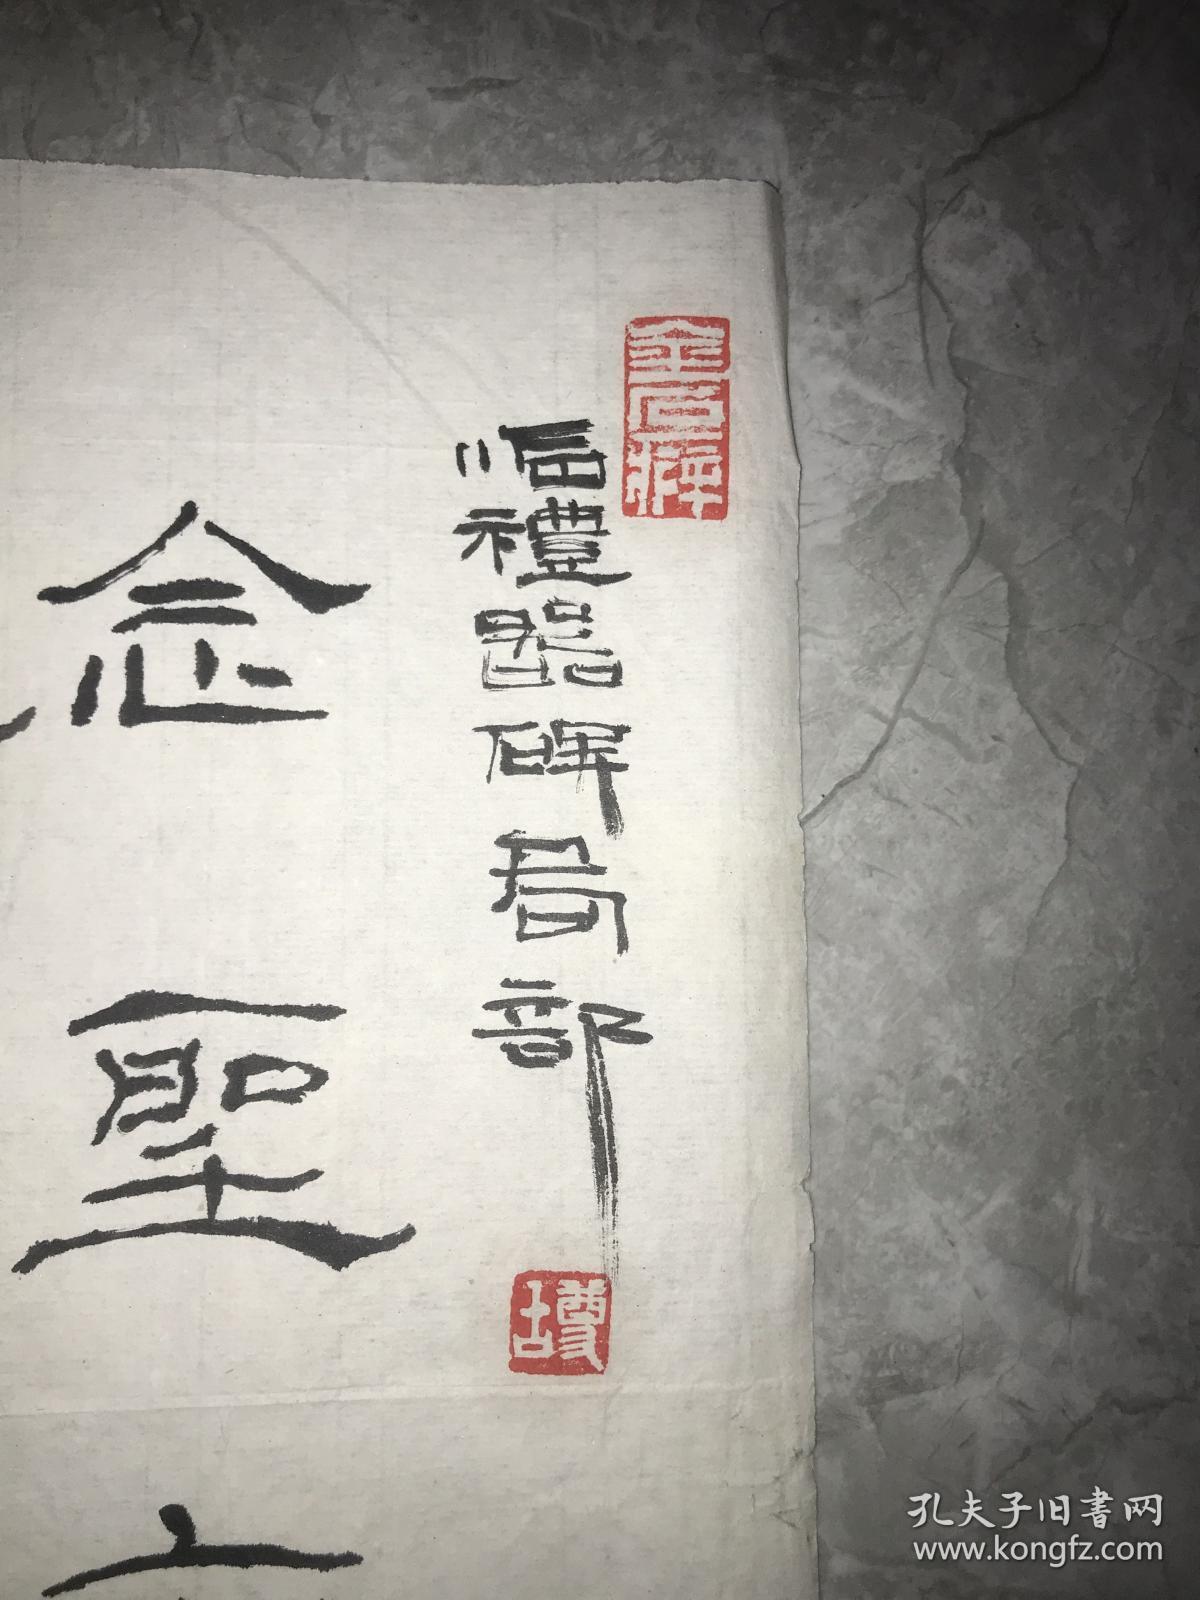 金石癖
临禮器碑局部
念聖
孔夫子旧书网
www.kongfz.com